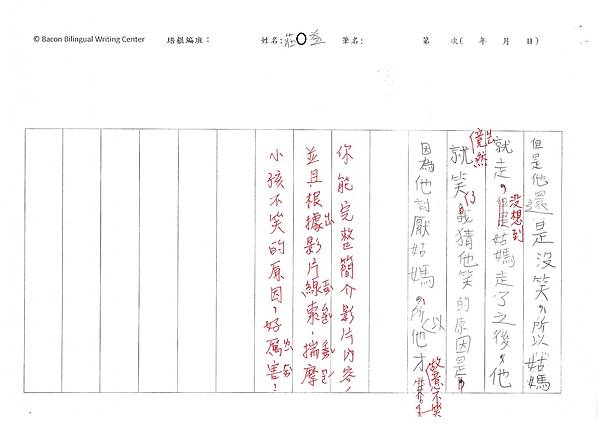 © Bacon Bilingual Writing Center 培根編班： 姓名:莊〇益 筆名: 第 次( 年 月 日)
但是他還是沒笑，所以姑媽
就走，但是姑媽走了之後，他
沒想到
竟然
就笑了，我猜他笑的原因是
因為他討厭姑媽，所以他才
故意不笑
你能完整簡介影片內容，
並且根據影片線索，揣摩
小孩不笑的原因，好厲害！